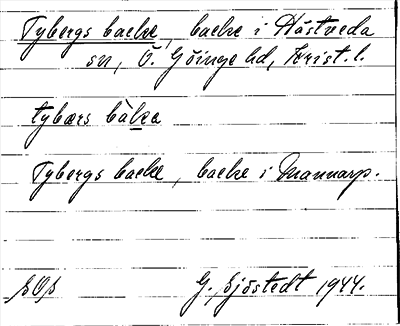 Tybergs backe, backe i Hästveda
sn, Ö. Göinge hd, Krist. l.
tybærs bàka
Tybergs backe, backe i Mannarp.
G. Sjöstedt 1944.